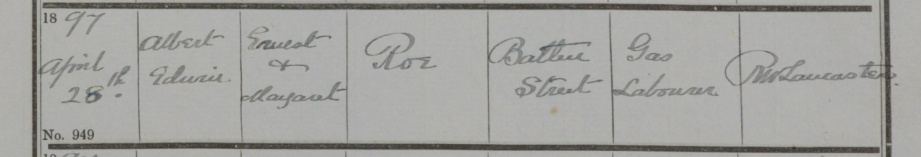 18 97
April
28th.
No. 949
Albert
Edwin.
Ernest
&
Margaret
Roe
Street
Gas
Labourer
Lancaster.